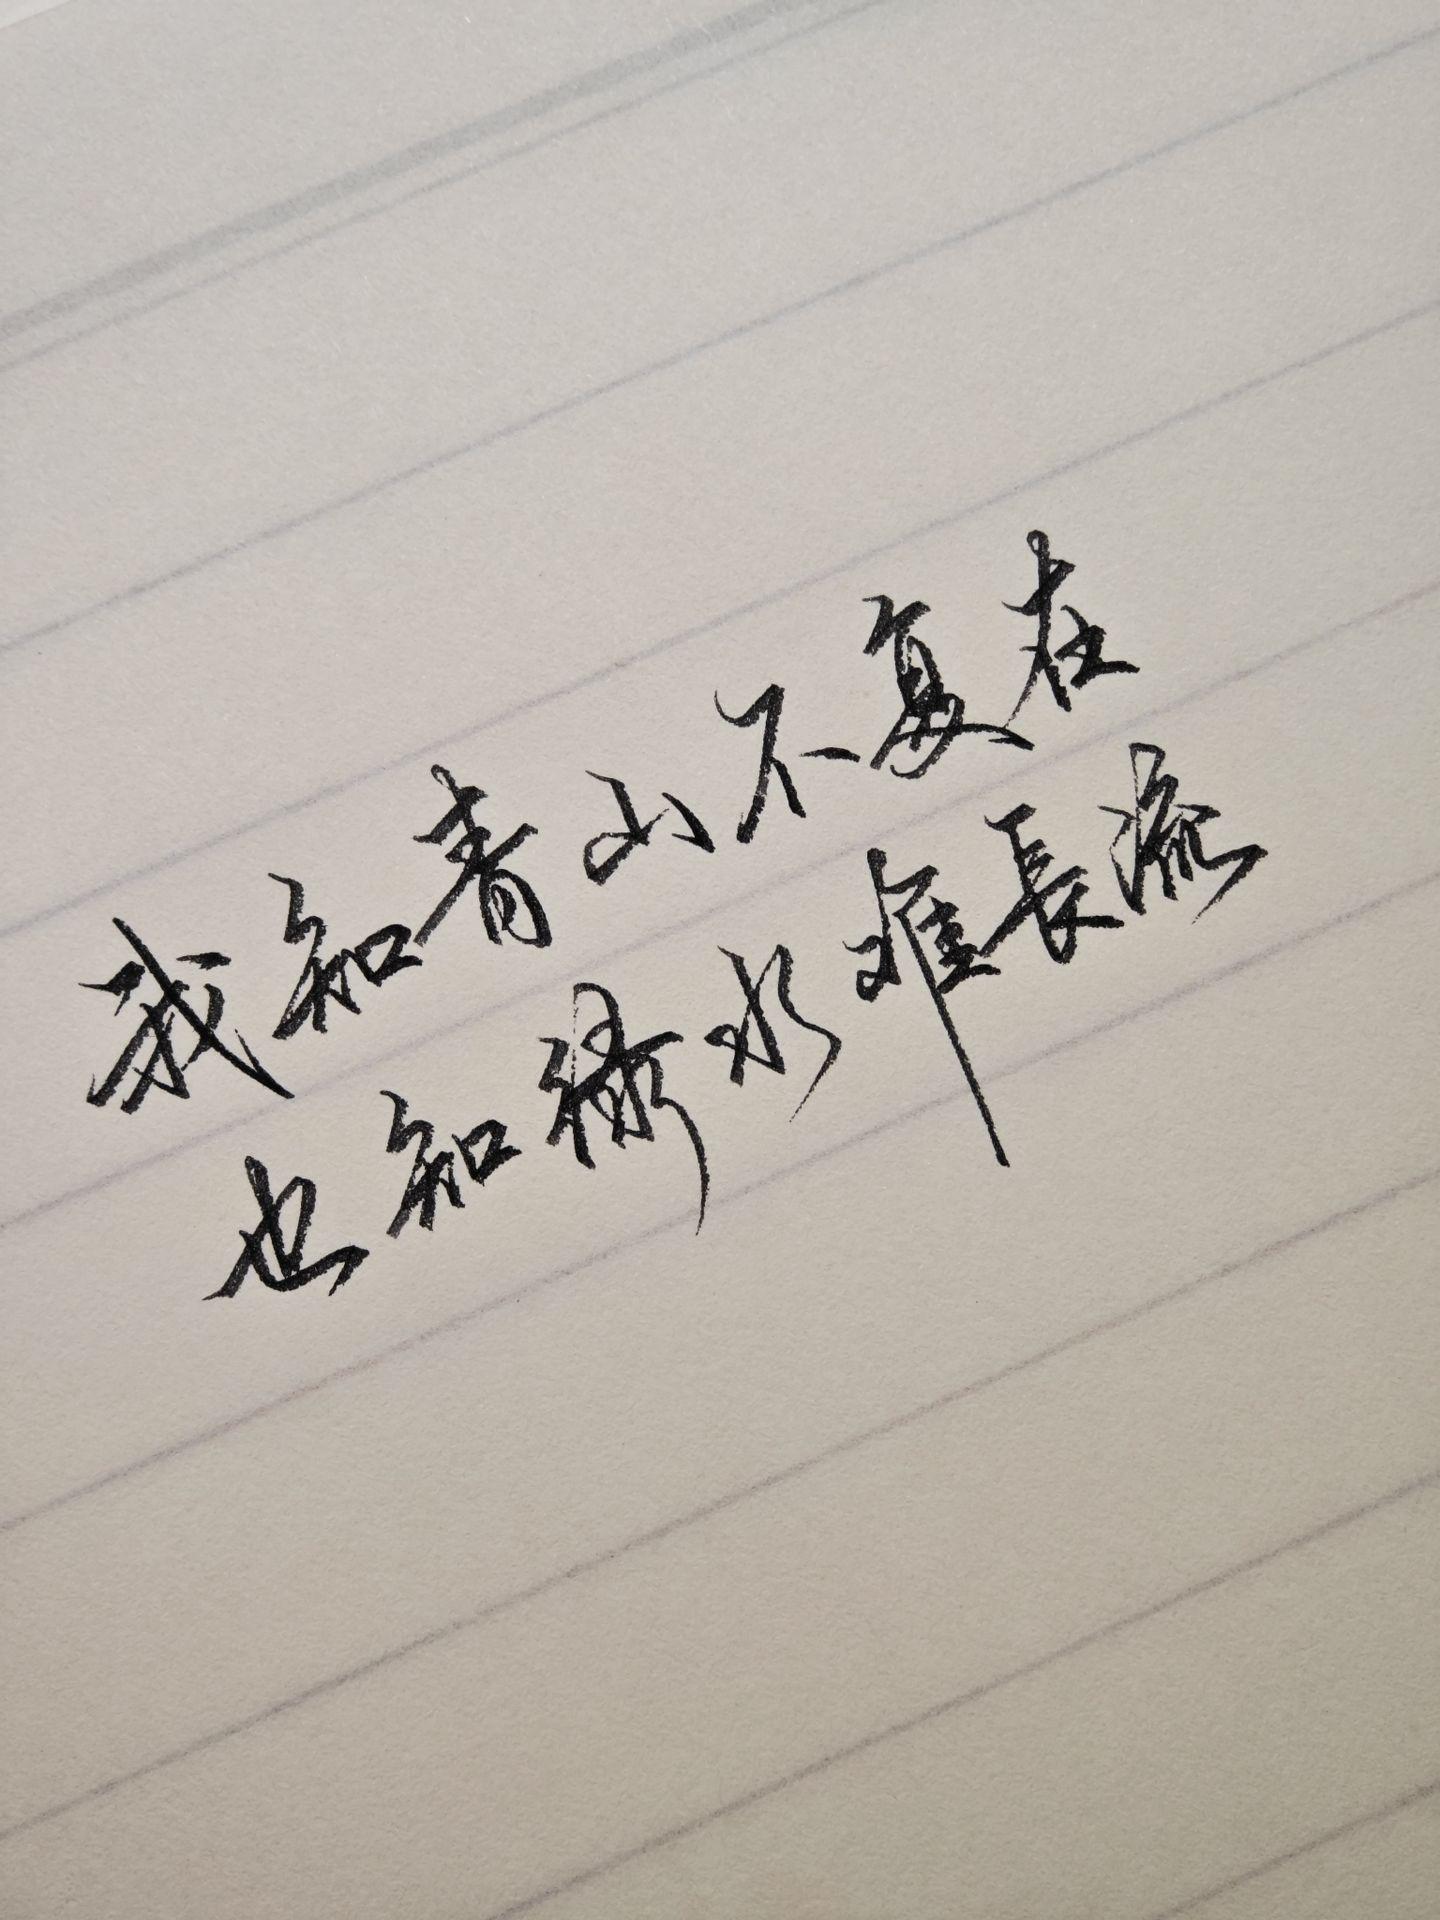 我知青山不复在
也知绿水难長流